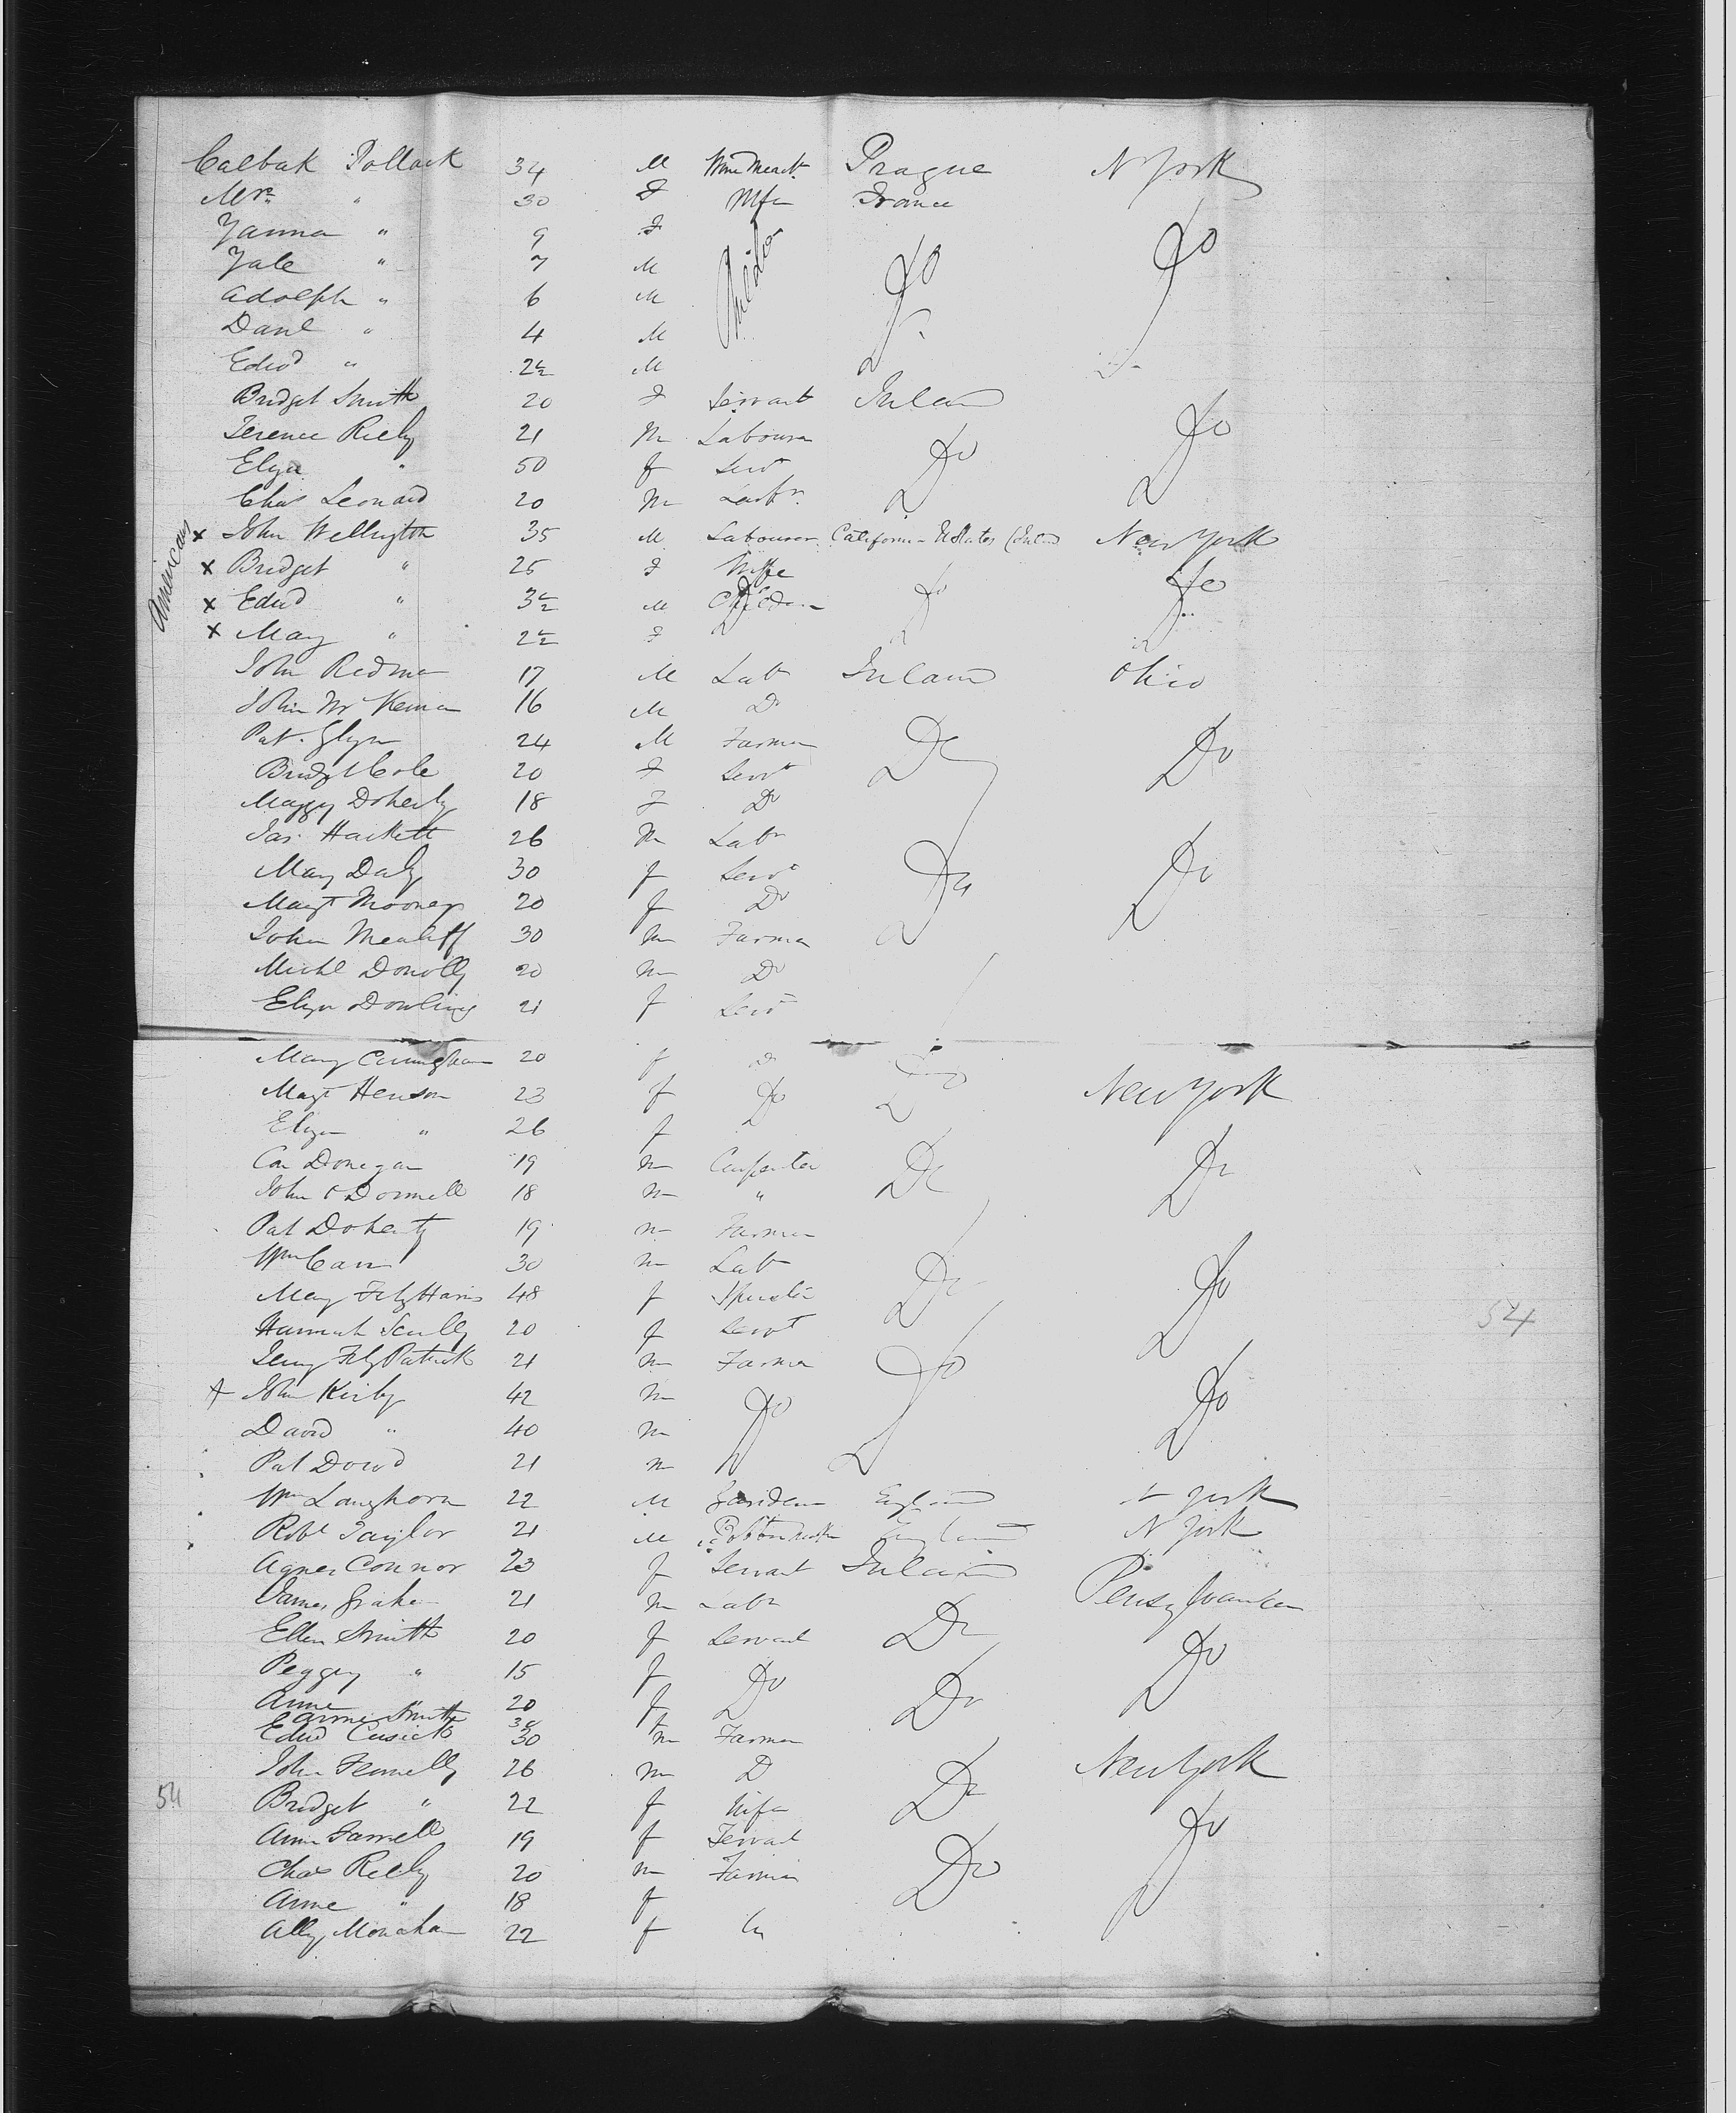 Calbak Pollack 34 M Wine Mercht. Prague N York
Mrs " 30 F Wife France
Yanna " 9 F Children Do Do
Yale " 7 M
Adolph " 6 M
Danl " 4 M
Edwd " 2 1/2 M
Bridget Smith 20 F Servant Ireland Do
Terence Riely 21 M Labourer Do
Eliza " 50 f Servt
Chas Leonard 20 M Labr.
Americans
x John Wellington 35 M Labourer California U States New York
x Bridget " 25 F Wife Do Do
x Edwd " 3 1/2 M Children
x Mary " 2 1/2 F
John Redman 17 M Lab Ireland Ohio
John 16 M Do
Pat. Glynn 24 M Farmer Do Do
Bridgt Cole 20 F Servt
Maggy Doherty 18 F Do
Jas. Hackett 26 M Labr
Mary Daly 30 f Servt Do Do
Margt Mooney 20 f Do
John 30 M Farmer
Michl Donolly 20 M Do
Eliza Dowling 21 f Servt
Mary Cunningham 20 f D
Margt Henson 23 f Do New York
Eliza " 26 f
Con Donegan 19 M Carpenter Do Do
John O Donnell 18 M "
Pat Doherty 19 M Farmer
Wm Carr 30 M Lab
Mary FitzHarris 48 f Do Do
Hannah Scully 20 f Servt
54
Jerry FitzPatrick 21 M Farmer Do
x John Kirby 42 M Do Do
David " 40 M
Pat Dowd 21 M
Wm Langhorn 22 M Gardener England N York
Robt Taylor 21 M England N York
Agnes Connor 23 f Servant Ireland Pensylvania
James Graham 21 M Labr
Ellen Smith 20 f Servant Do
Peggy " 15 f Do Do
Anne " 20 f Do
Anne Smith 30 f
Edwd Cusick 30 M Farmer
John Fennelly 26 M D New York
54 Bridget " 22 f Wife Do
Ann Farrell 19 f Servant Do
Chas Reily 20 M Farmer Do
Anne " 18 f
Ally Monahan 22 f